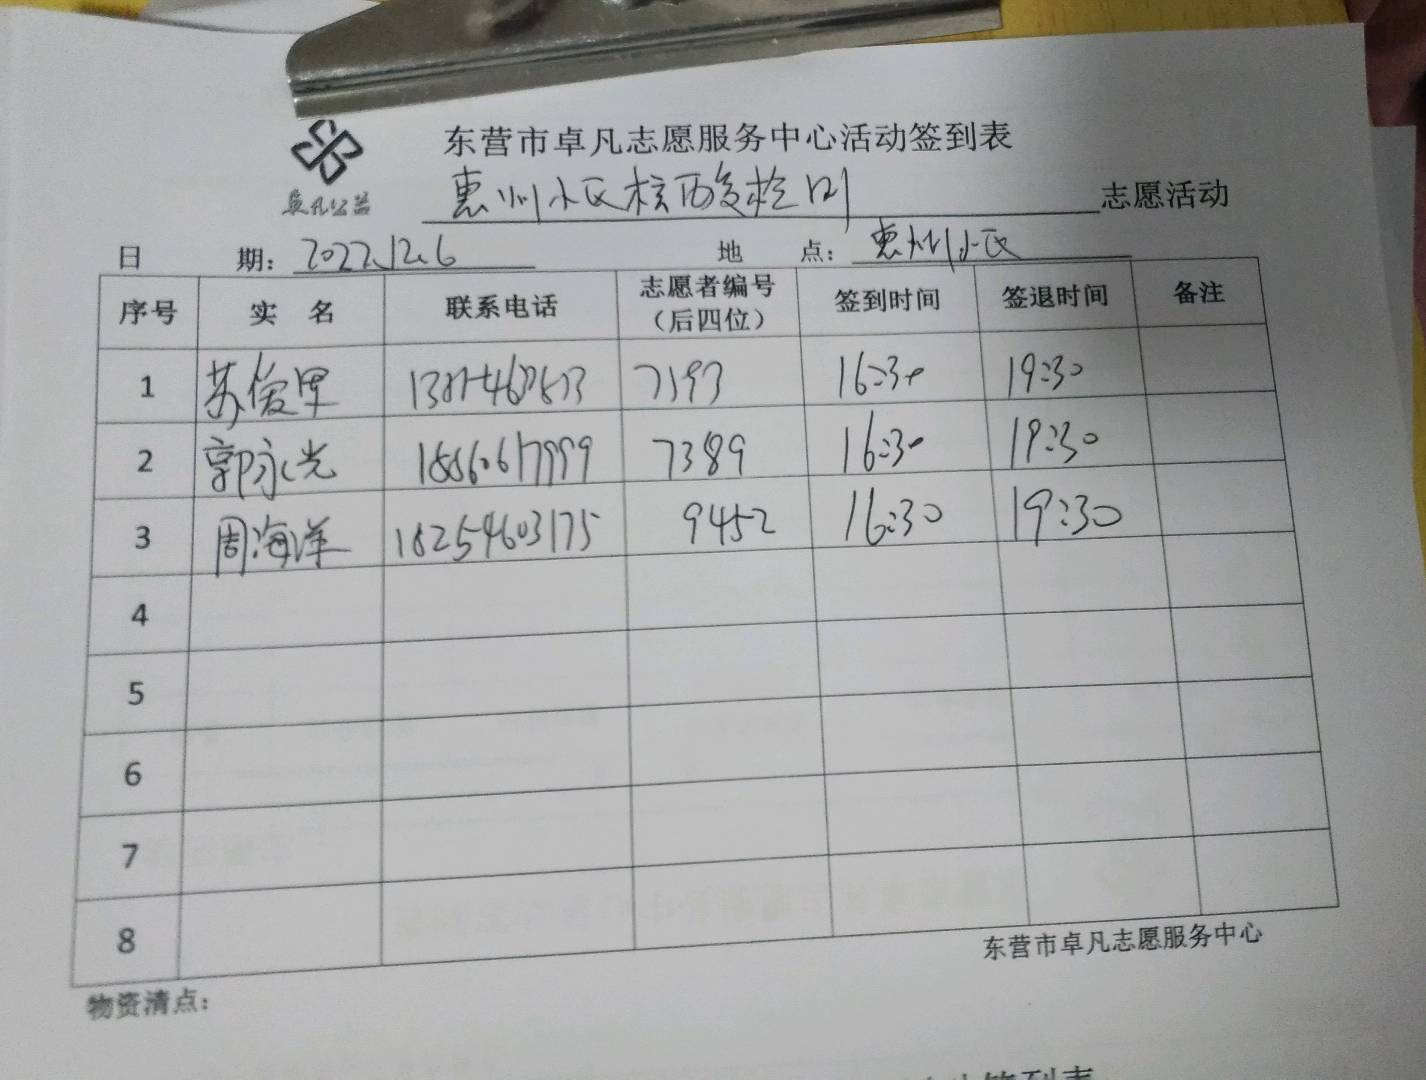 东营市卓凡志愿服务中心活动签到表
卓凡公益
惠州小区核酸检测 志愿活动
日 期：2022.12.6 地 点：惠州小区
序号 实 名 联系电话 志愿者编号（后四位） 签到时间 签退时间 备注
1 苏俊军 7193 16:30 19:30
2 郭永光 18860617999 7389 16:30 19:30
3 周海洋 18254603175 9452 16:30 19:30
4
5
6
7
8
东营市卓凡志愿服务中心
物资清点：
签到表